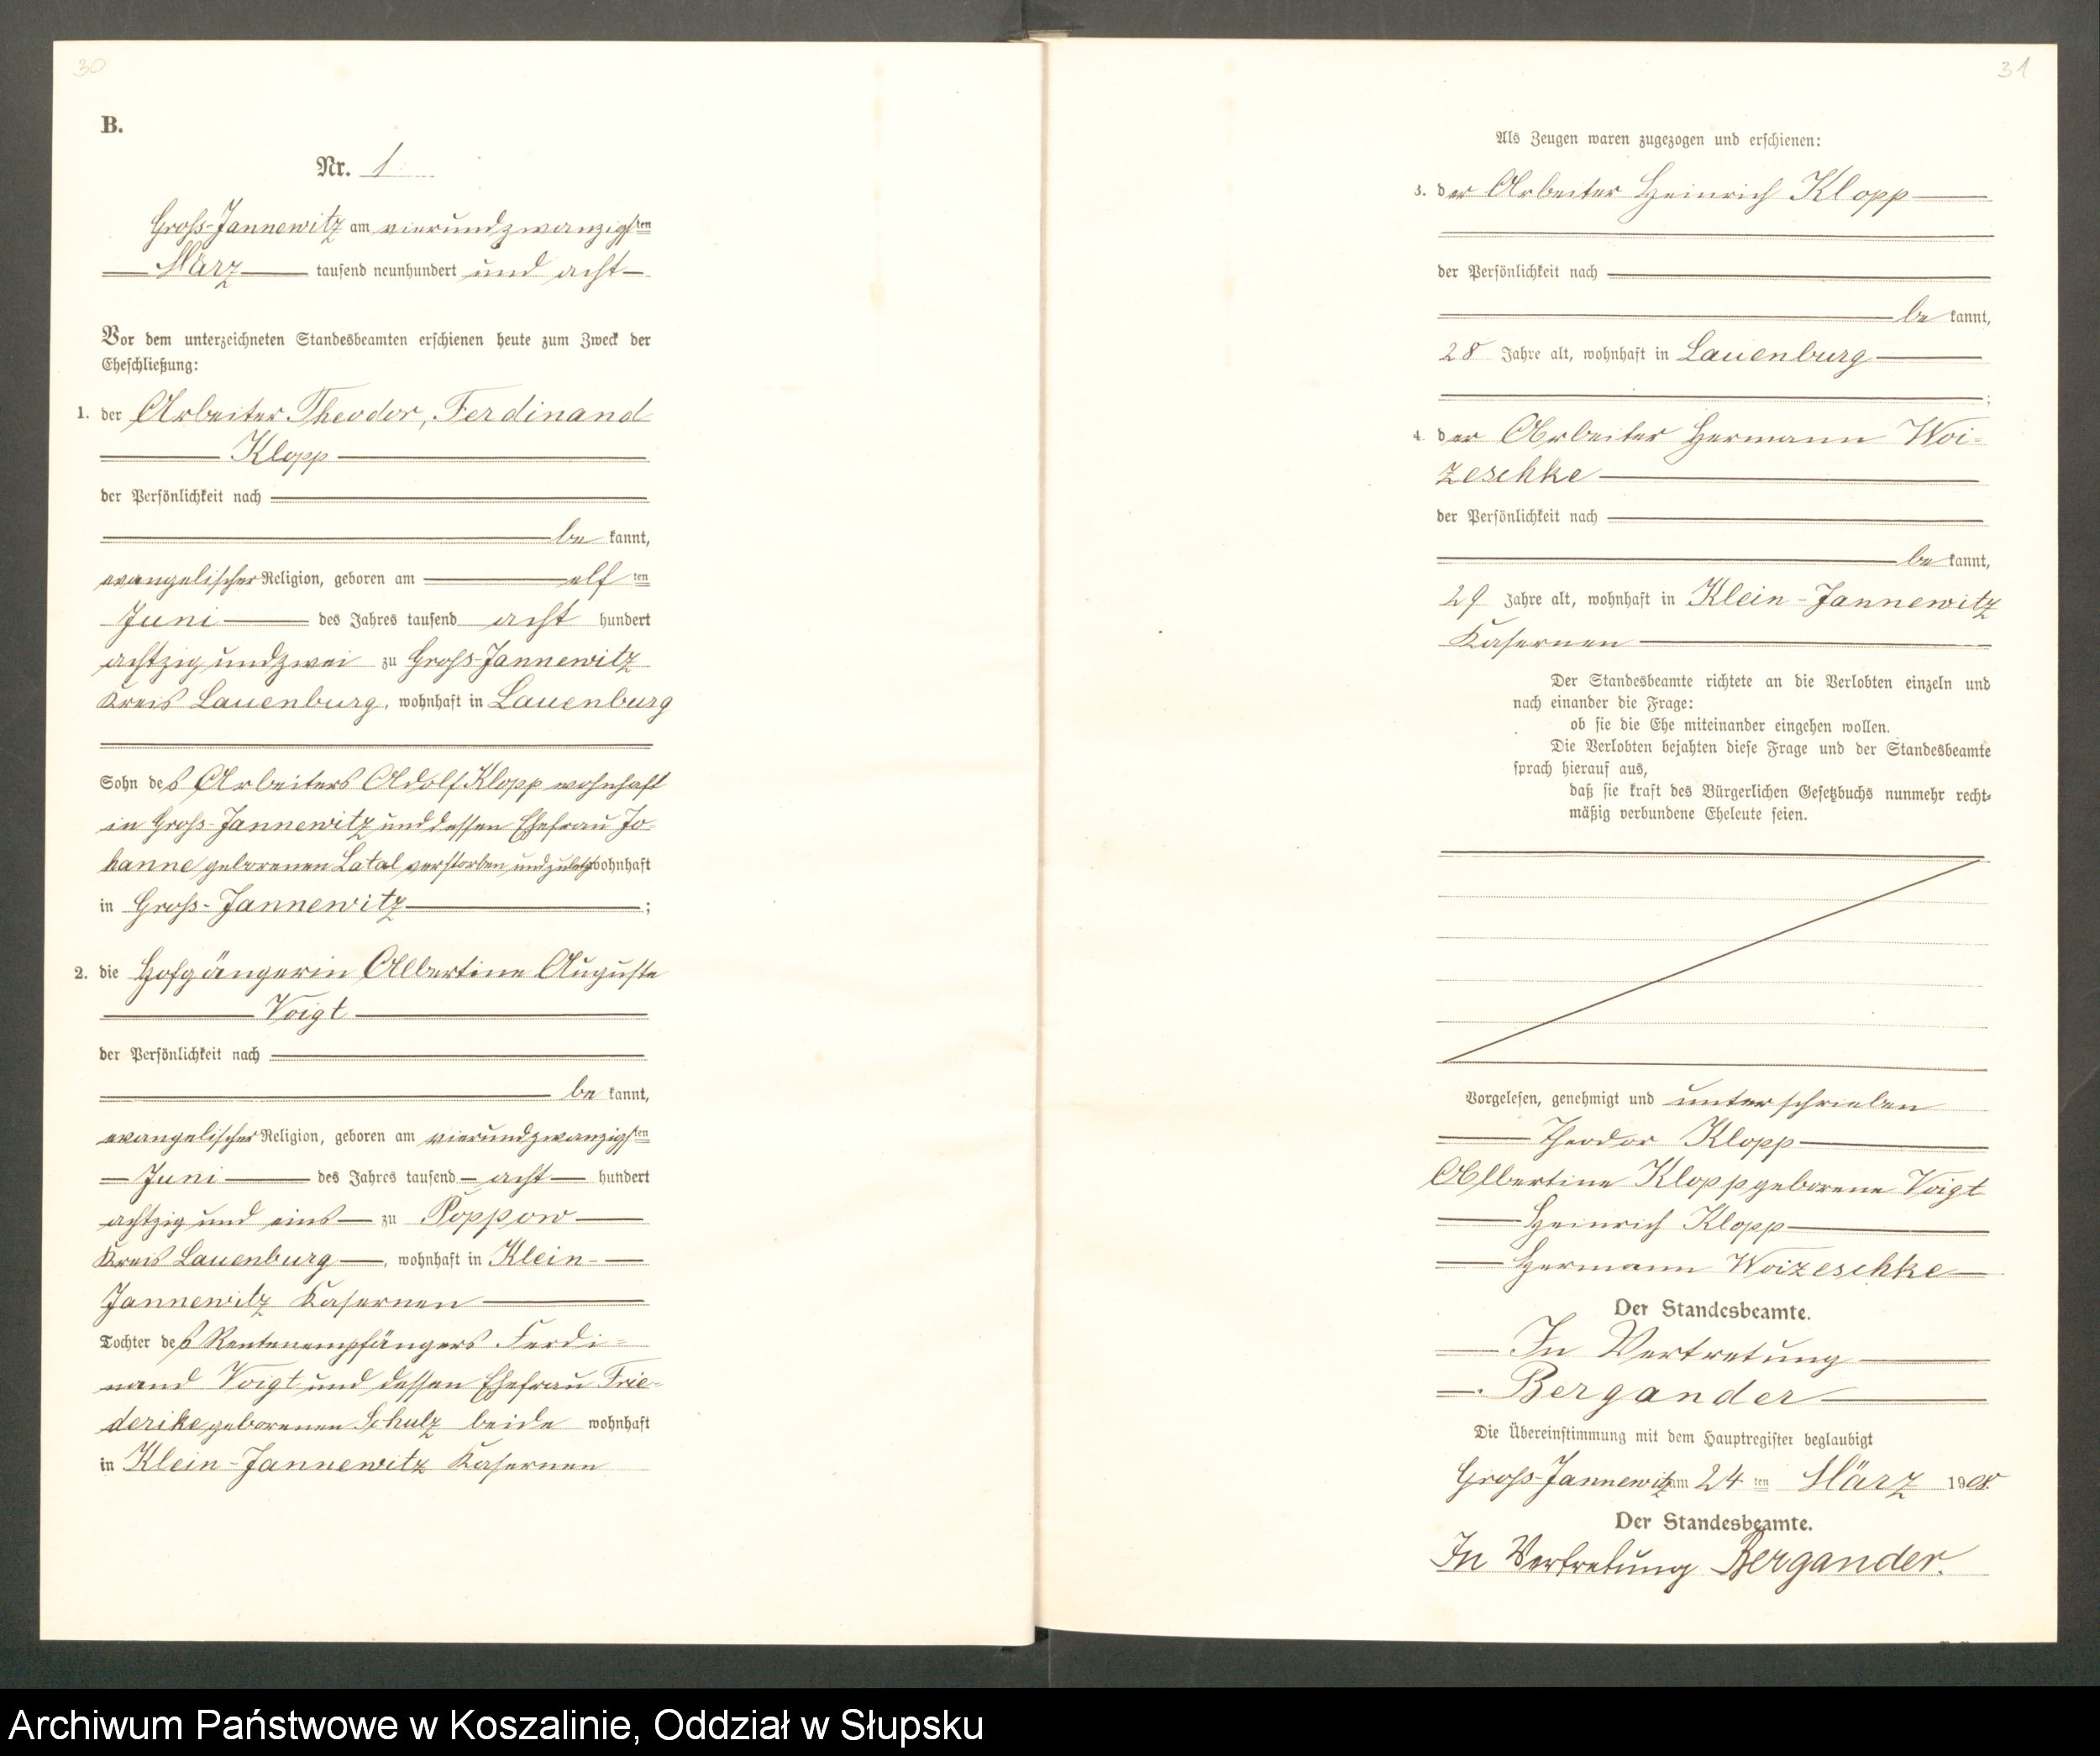 30
B.
Nr. 1
Groß-Jannewitz am vierundzwanzigsten
März tausend neunhundert und acht
Vor dem unterzeichneten Standesbeamten erschienen heute zum Zweck der
Eheschließung:
1. der Arbeiter Theodor, Ferdinand
Klopp
der Persönlichkeit nach
be kannt,
evangelischer Religion, geboren am elf ten
Juni des Jahres tausend acht hundert
achtzig und zwei zu Groß-Jannewitz
Kreis Lauenburg, wohnhaft in Lauenburg
Sohn des Arbeiters Adolf Klopp wohnhaft
in Groß-Jannewitz und dessen Ehefrau Jo-
hanne geborenen Latal verstorben und zuletzt wohnhaft
in Groß-Jannewitz ;
2. die Hofgängerin Albertine Auguste
Voigt
der Persönlichkeit nach
be kannt,
evangelischer Religion, geboren am vierundzwanzigsten
Juni des Jahres tausend acht hundert
achtzig und eins zu Poppow
Kreis Lauenburg, wohnhaft in Klein-
Jannewitz Kasernen
Tochter des Rentenempfängers Ferdi=
nand Voigt und dessen Ehefrau Frie-
derike geborenen Schulz beide wohnhaft
in Klein-Jannewitz Kasernen
31
Als Zeugen waren zugezogen und erschienen:
3. der Arbeiter Heinrich Klopp
der Persönlichkeit nach
be kannt,
28 Jahre alt, wohnhaft in Lauenburg
;
4. der Arbeiter Hermann Woi-
zeschke
der Persönlichkeit nach
be kannt,
29 Jahre alt, wohnhaft in Klein-Jannewitz
Kasernen
Der Standesbeamte richtete an die Verlobten einzeln und
nach einander die Frage:
ob sie die Ehe miteinander eingehen wollen.
Die Verlobten bejahten diese Frage und der Standesbeamte
sprach hierauf aus,
daß sie kraft des Bürgerlichen Gesetzbuchs nunmehr recht-
mäßig verbundene Eheleute seien.
Vorgelesen, genehmigt und unterschrieben
Theodor Klopp
Albertine Klopp geborene Voigt
Heinrich Klopp
Hermann Woizeschke
Der Standesbeamte.
In Vertretung
Bergander
Die Übereinstimmung mit dem Hauptregister beglaubigt
Groß-Jannewitz am 24 ten März 1908.
Der Standesbeamte.
In Vertretung Bergander.
Archiwum Państwowe w Koszalinie, Oddział w Słupsku